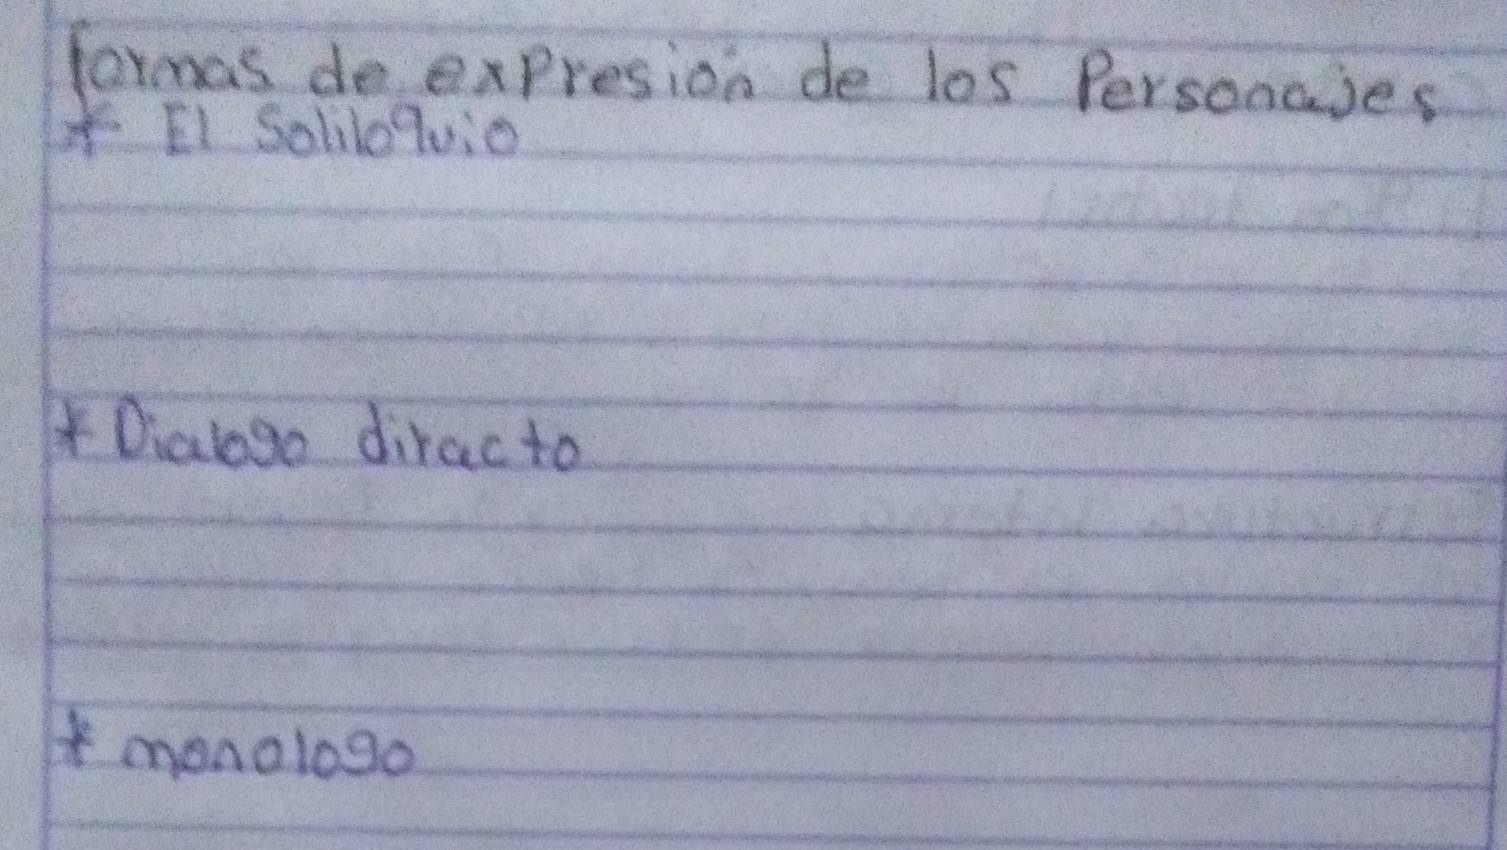 formas de expresión de los Personajes
* El Soliloquio
* Dialogo diracto
* monologo